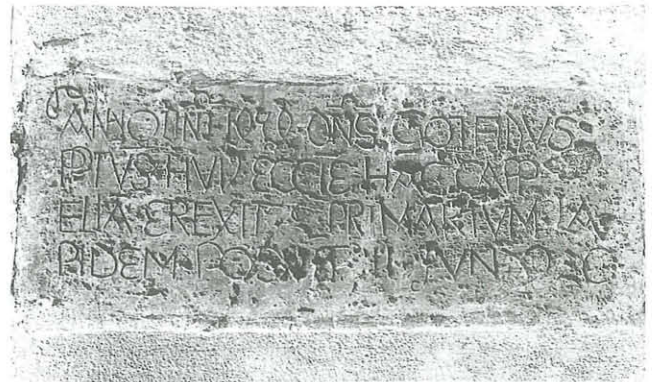 ANNO DNI 1490 DNS GOTFIDVS
PPTVS HVIV ECCIE HAC CAPP
ELIA EREXIT E PRIMARIVM LA
PIDEM POSVIT II IVN